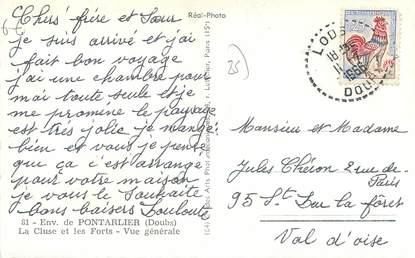 Chers frère et Sœur
je suis arrivé et j'ai
fait bon voyage
j'ai une chambre pour
moi toute seule et je
me promène le paysage
est très jolie je mange
bien et vous je pense
que ça c'est arrangé
pour votre maison
je vous le Souhaite
bons baisers Louloute
81 - Env. de PONTARLIER (Doubs)
La Cluse et les Forts - Vue générale
Réal-Photo
25
18
1966
DOUBS
Monsieur et Madame
Jules Chéron 2 rue de
Paris
95 St Leu la forêt
Val d'oise